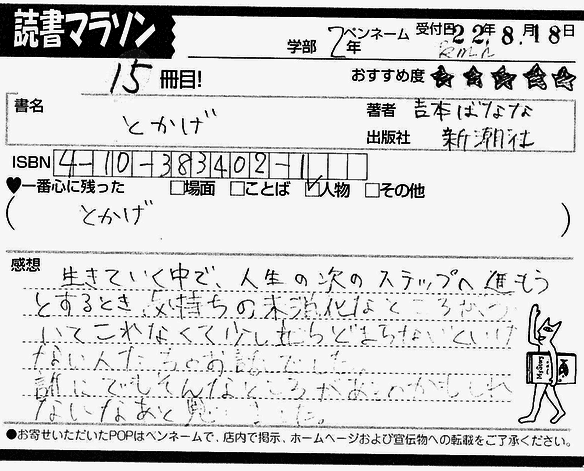 読書マラソン
学部 2年 ペンネーム 受付日 22年 8月 18日
15冊目! おすすめ度 ☆☆☆☆☆
書名 とかげ
著者 吉本ばなな
出版社 新潮社
ISBN 4-10-383402-1
♥一番心に残った □場面 □ことば ☑人物 □その他
(とかげ)
感想
生きていく中で、人生の次のステップへ進もう
とするとき、気持ちの未消化なところが、つ
いてこれなくて少し立ちどまらないといけ
ない人たちのお話でした。
誰にでもそんなところがあるのかもしれ
ないなあと思いました。
●お寄せいただいたPOPはペンネームで、店内で掲示、ホームページおよび宣伝物への転載をご了承ください。